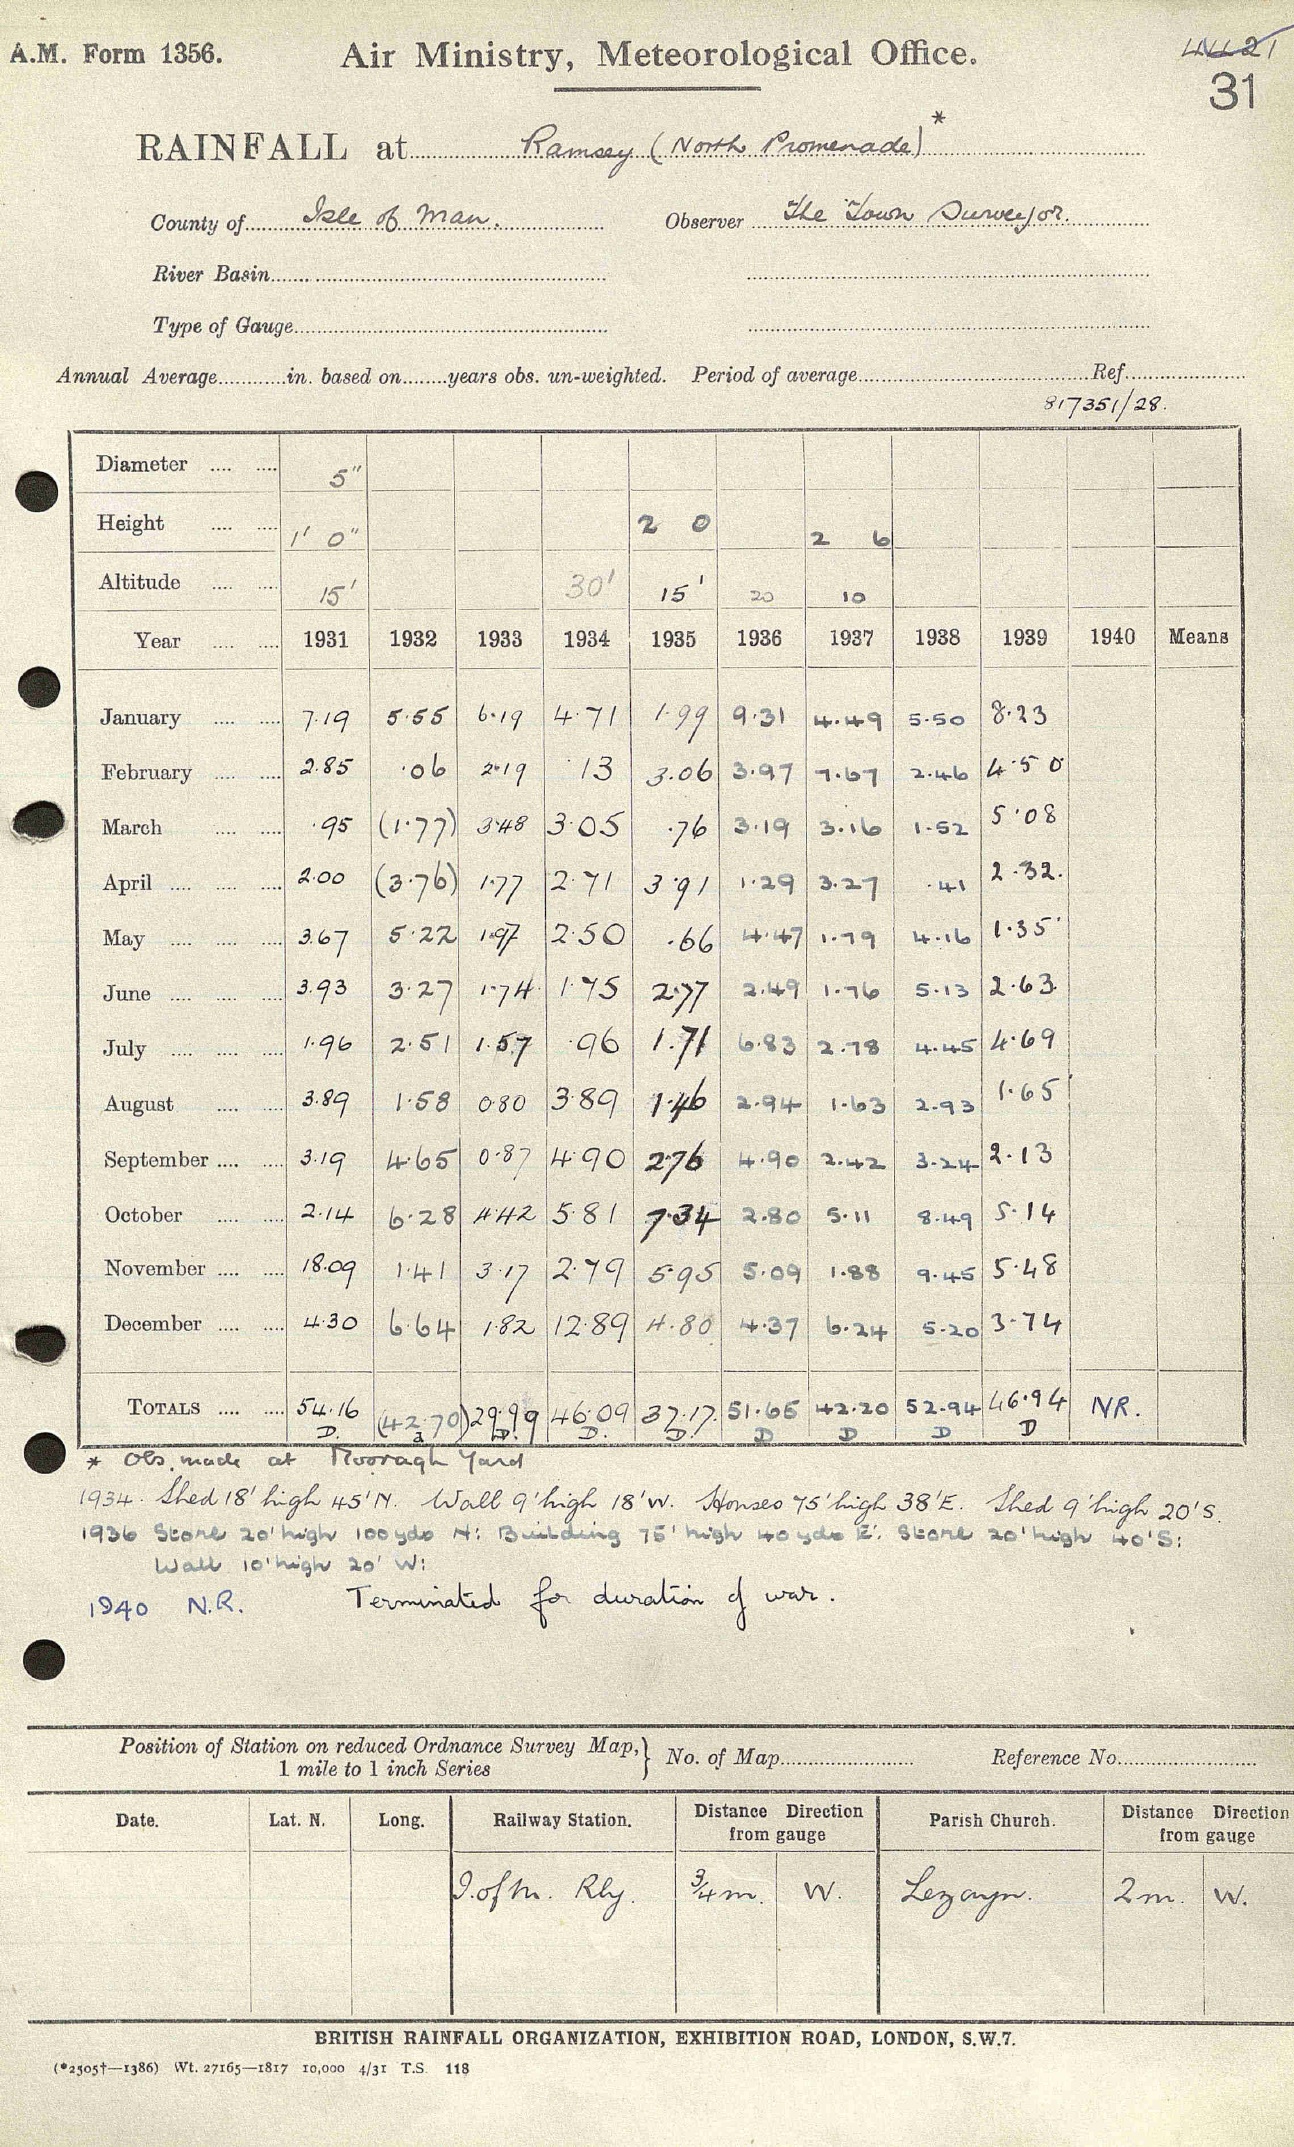 A.M. Form 1356. Air Ministry, Meteorological Office.
31
RAINFALL at Ramsey (North Promenade) *
County of Isle of Man. Observer The Town Surveyor.
River Basin
Type of Gauge
Annual Average in. based on years obs. un-weighted. Period of average Ref.
817351/28.
Diameter 5"
Height 1' 0" 2 0 2 6
Altitude 15' 30' 15' 20 10
Year 1931 1932 1933 1934 1935 1936 1937 1938 1939 1940 Means
January 7.19 5.55 6.19 4.71 1.99 9.31 4.49 5.50 8.23
February 2.85 .06 2.19 .13 3.06 3.97 7.67 2.46 4.50
March .95 (1.77) 3.48 3.05 .76 3.19 3.16 1.52 5.08
April 2.00 (3.76) 1.77 2.71 3.91 1.29 3.27 .41 2.32.
May 3.67 5.22 1.97 2.50 .66 4.47 1.79 4.16 1.35
June 3.93 3.27 1.74 1.75 2.77 2.49 1.76 5.13 2.63
July 1.96 2.51 1.57 .96 1.71 6.83 2.78 4.45 4.69
August 3.89 1.58 0.80 3.89 1.46 2.94 1.63 2.93 1.65
September 3.19 4.65 0.87 4.90 2.76 4.90 2.42 3.24 2.13
October 2.14 6.28 4.42 5.81 7.34 2.80 5.11 8.49 5.14
November 18.09 1.41 3.17 2.79 5.95 5.09 1.88 9.45 5.48
December 4.30 6.64 1.82 12.89 4.80 4.37 6.24 5.20 3.74
TOTALS 54.16 (42.70) 29.99 46.09 37.17. 51.65 42.20 52.94 46.94 NR.
D. a D. D. D. D D D D
* Obs. made at Mooragh Yard
1934. Shed 18' high 45' N. Wall 9' high 18' W. Houses 75' high 38' E. Shed 9' high 20' S.
1936 Store 20' high 100 yds N: Building 75' high 40 yds E: Store 20' high 40' S:
Wall 10' high 20' W:
1940 N.R. Terminated for duration of war.
Position of Station on reduced Ordnance Survey Map, } No. of Map Reference No.
1 mile to 1 inch Series
Date. Lat. N. Long. Railway Station. Distance Direction from gauge Parish Church. Distance Direction from gauge
I. of M. Rly. 3/4 m. W. Lezayre. 2 m. W.
BRITISH RAINFALL ORGANIZATION, EXHIBITION ROAD, LONDON, S.W.7.
(*2505†—1386) Wt. 27165—1817 10,000 4/31 T.S. 118